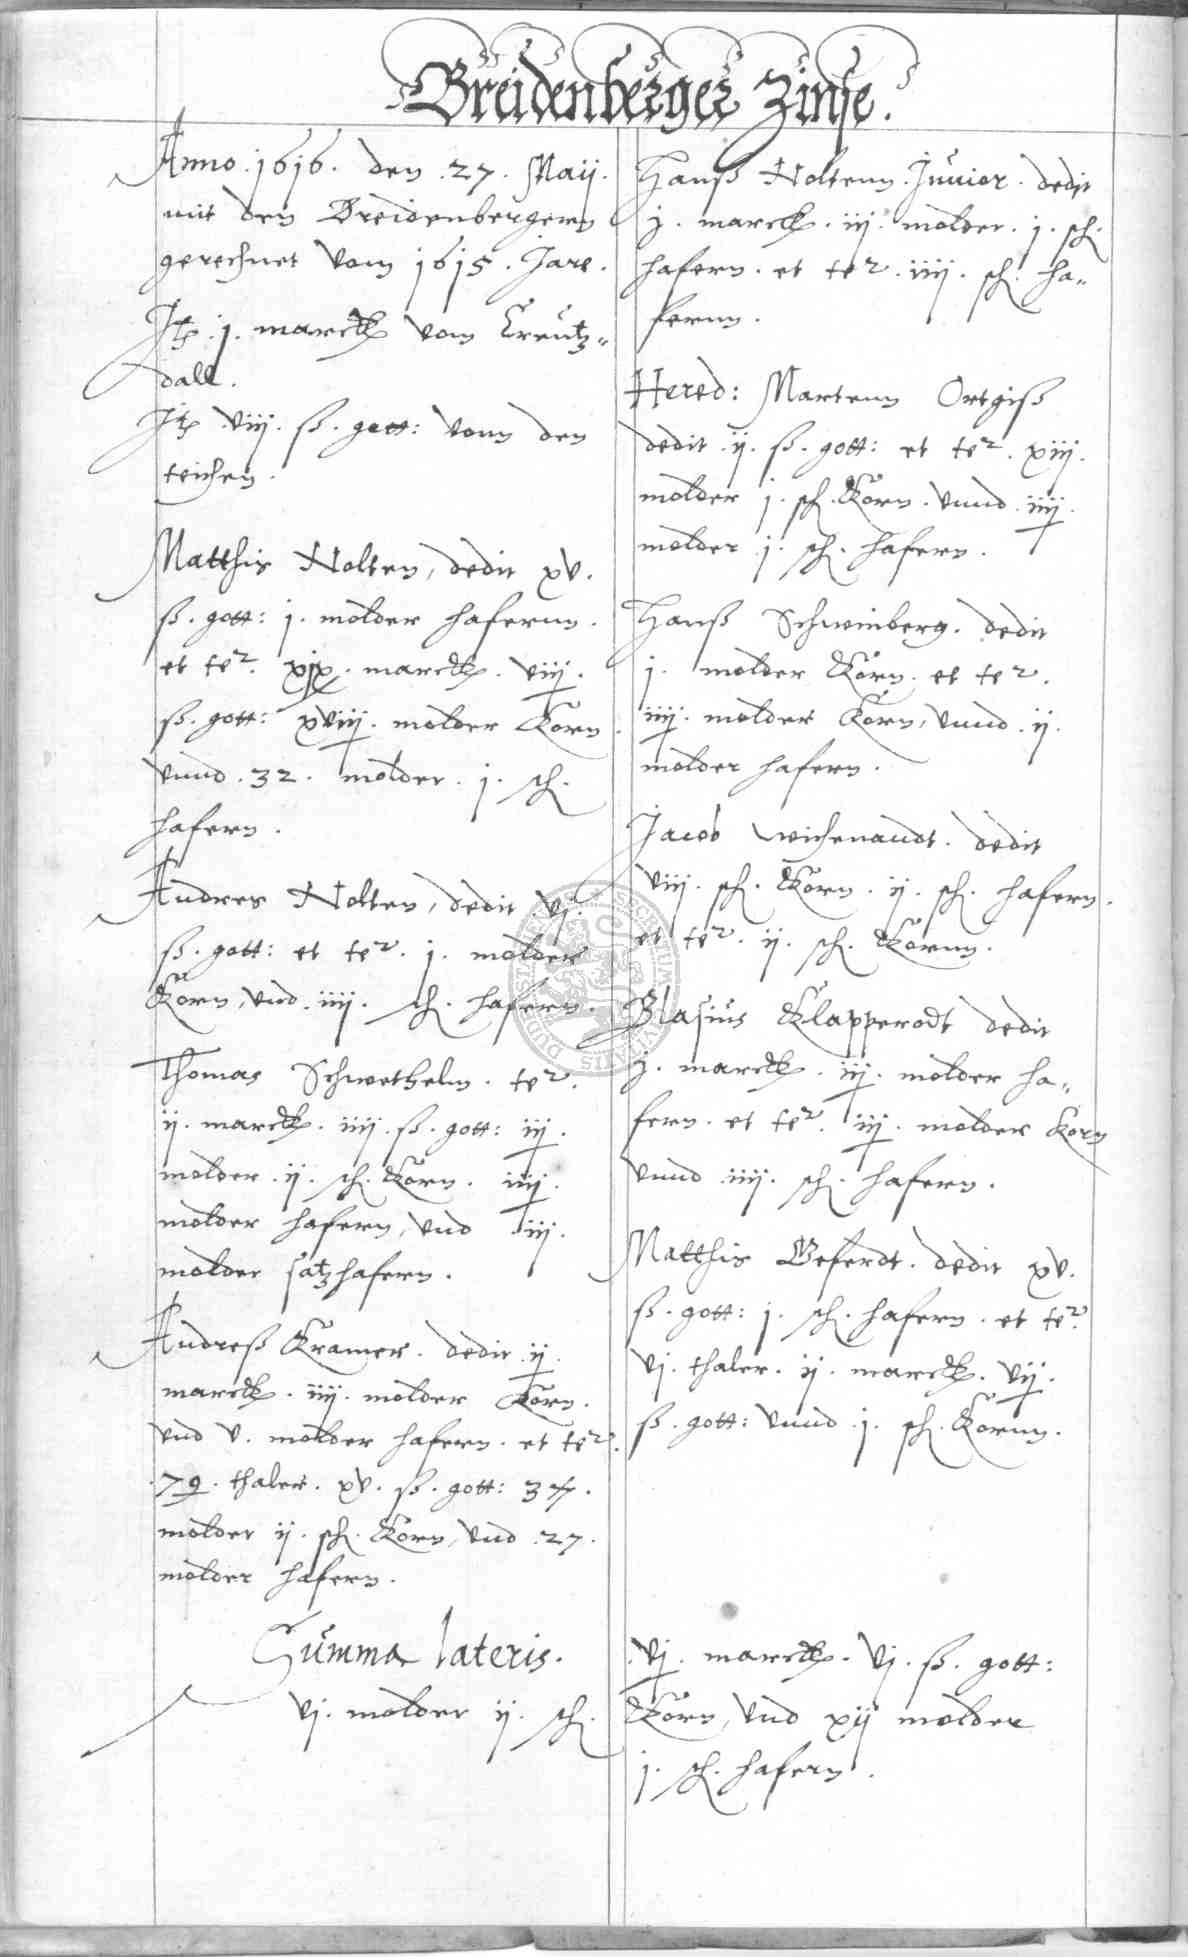 Breidenberger Zinse.
Anno .1616. den .27. Maij.
mit den Breidenbergern
gerechnet vom 1615. Jare.
It͠. j. marck vom Creutz„
dall.
It͠ .viij. ß. gott: vonn den
teichen.
Matthis Nolten, dedit xv.
ß. gott: j. molder hafernn.
et te2. xjx. marck. viij.
ß. gott: xviij. molder Korn
vnnd .32. molder. j. sch.
hafern.
Andres Nolten, dedit .vj.
ß. gott: et te2. j. molder
Korn, vnd .iiij. sch. hafern.
Thomas Schwethelm. te2.
ij. marck. iiij. ß. gott: iij.
molder .ij. sch. Korn. iiij.
molder hafern, vnd iij.
molder satzhafern.
Andreß Kramer. dedit .ij.
marck. iiij. molder Korn.
vnd v. molder hafern. et te2.
.79. thaler. xv. ß. gott: 37.
molder ij. sch. Korn, vnd .27.
molder hafern.
Hanß Noltenn. Junior. dedit
j. marck. iij. molder. j. sch.
hafern. et te2. iiij. sch. ha„
fernn.
Hered: Martenn Ortgiß
dedit .ij. ß. gott: et te2. xiij.
molder j. sch. Korn. vnnd .iiij.
molder j. sch. hafern.
Hanß Schweinberg. dedit
j. molder Korn. et te2.
iiij. molder Korn, vnnd .ij.
molder hafern.
Jacob Wichenandt. dedit
viij. sch. Korn. ij. sch. hafern.
et te2. ij. sch. Kornn.
Blasius Klapperodt dedit
j. marck. iij. molder ha„
fern. et te2. iij. molder Korn
vnnd .iiij. sch. hafern.
Matthis Geferdt. dedit xv.
ß. gott: j. sch. hafern. et te2.
vj. thaler. ij. marck. vij.
ß. gott: vnnd .j. sch. Kornn.
Summa lateris. .vj. marck. vj. ß. gott:
vj. molder ij. sch. Korn, vnd xij molder
j. sch. hafern.